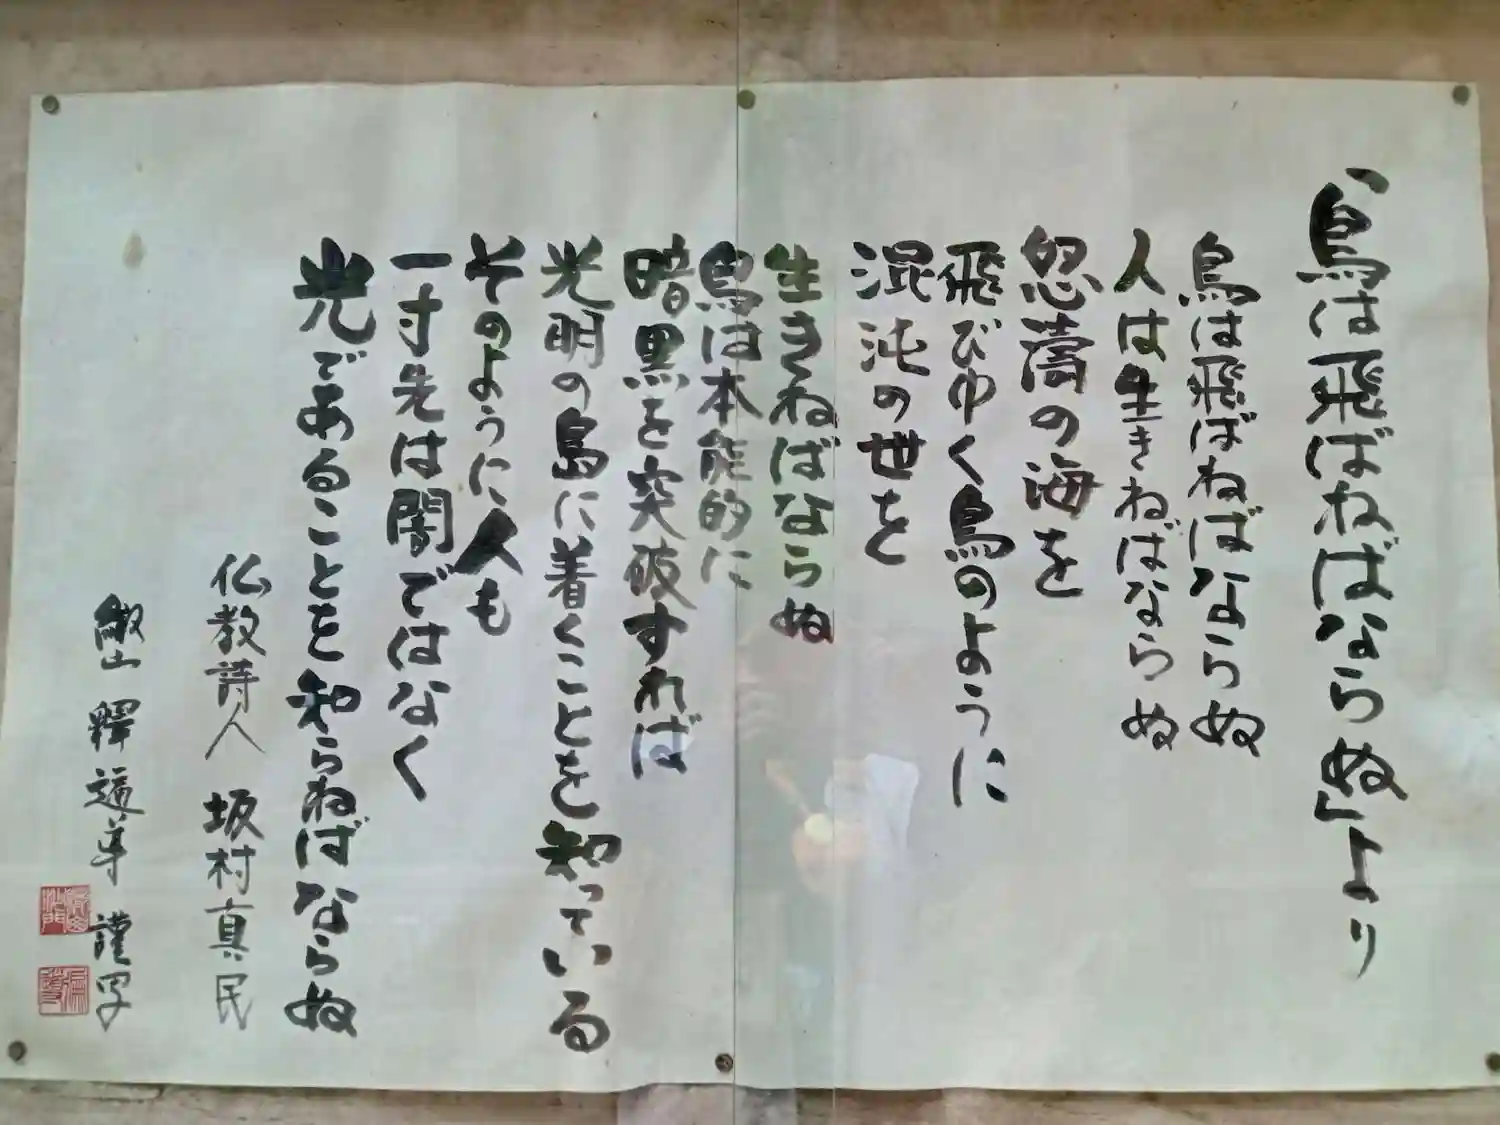 「鳥は飛ばねばならぬ」より
鳥は飛ばねばならぬ
人は生きねばならぬ
怒濤の海を
飛びゆく鳥のように
混沌の世を
生きねばならぬ
鳥は本能的に
暗黒を突破すれば
光明の島に着くことを知っている
そのように人も
一寸先は闇ではなく
光であることを知らねばならぬ
仏教詩人 坂村真民
釋 導 謹写